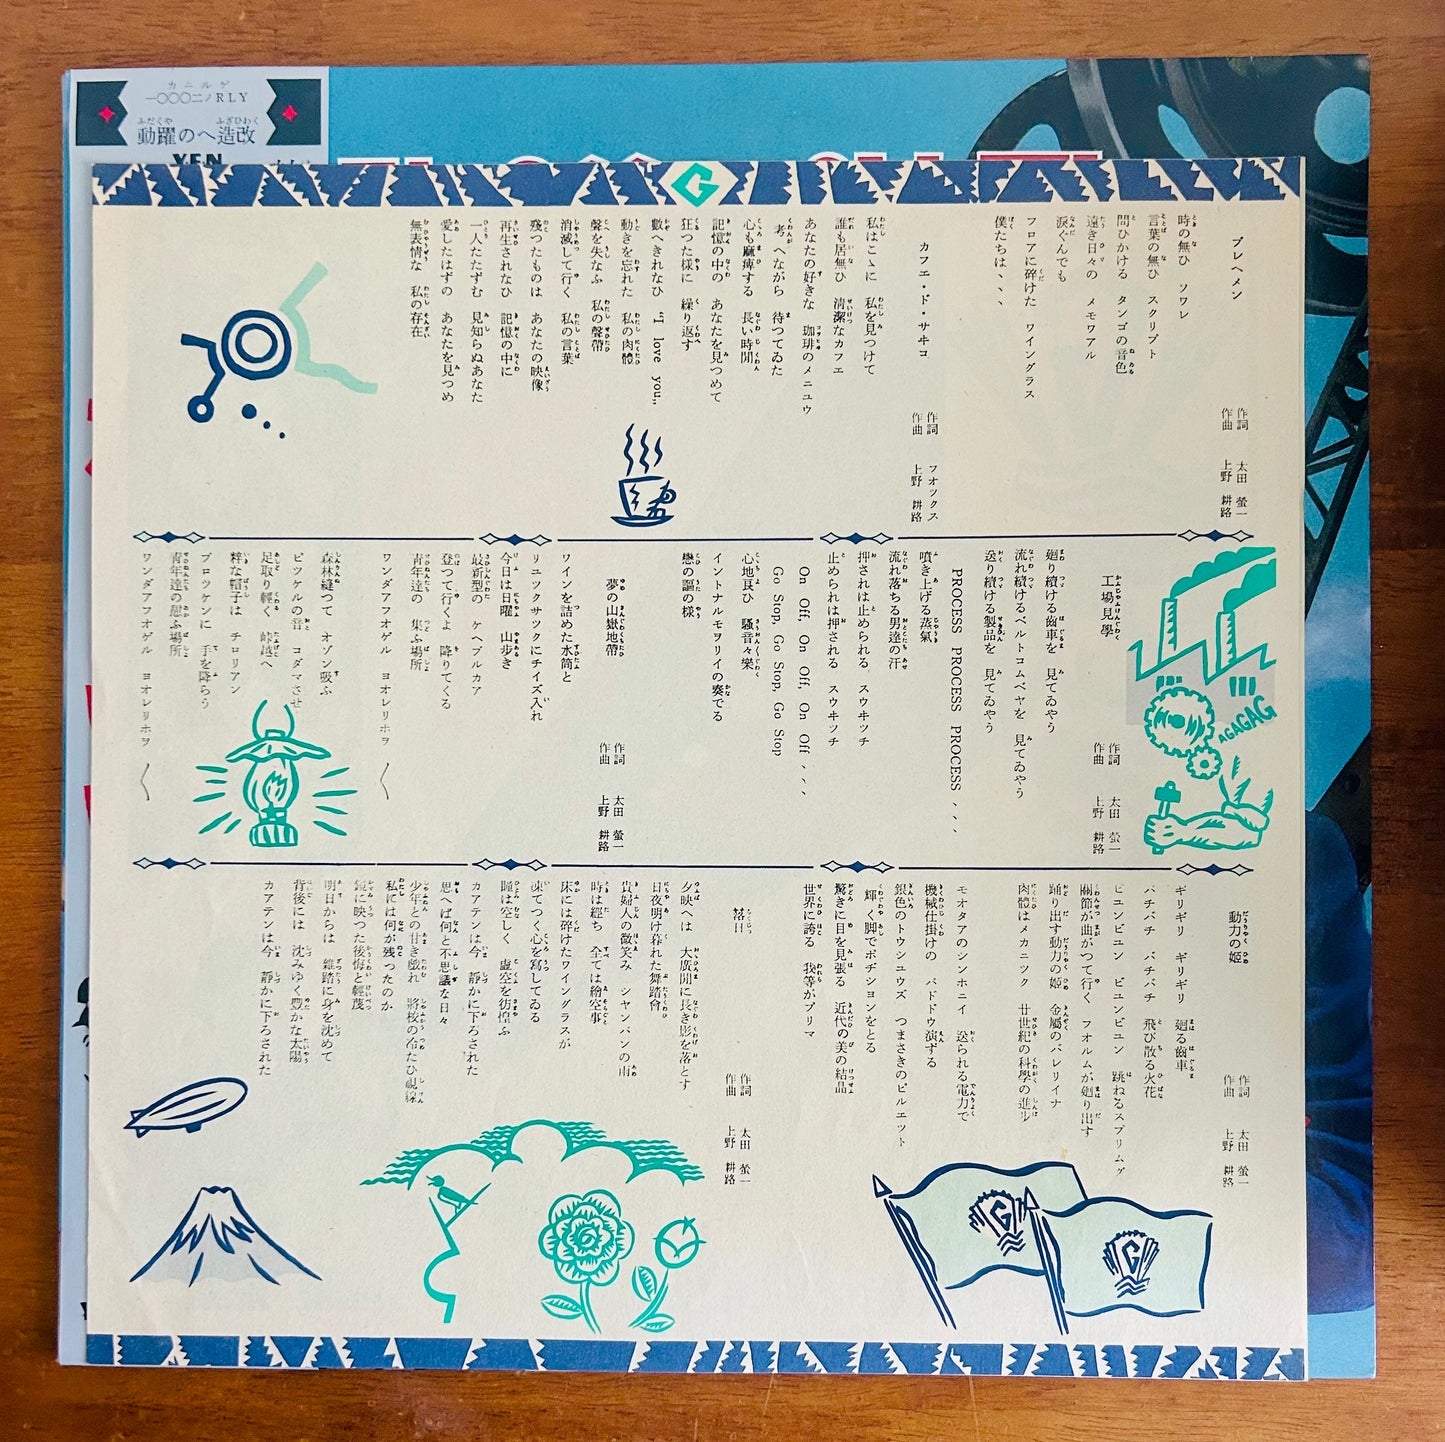 カニルゲ
一〇〇〇二ノRLY
動躍のへ造改
YEN
G
ブレヘメン
作詞 太田 螢一
作曲 上野 耕路
時の無ひ ソワレ
言葉の無ひ スクリプト
問ひかける タンゴの音色
遠き日々の メモワアル
淚ぐんでも
フロアに碎けた ワイングラス
僕たちは、、、
カフエ・ド・サキコ
作詞 フオツクス
作曲 上野 耕路
私はこゝに 私を見つけて
誰も居無ひ 淸潔なカフエ
あなたの好きな 珈琲のメニユウ
考へながら 待つてゐた
心も麻痺する 長い時間
記憶の中の あなたを見つめて
狂つた樣に 繰り返す
數へきれなひ “I love you„
動きを忘れた 私の肉體
聲を失なふ 私の聲帶
消滅して行く 私の言葉
殘つたものは あなたの映像
再生されなひ 記憶の中に
一人たたずむ 見知らぬあなた
愛したはずの あなたを見つめ
無表情な 私の存在
工場見學
作詞 太田 螢一
作曲 上野 耕路
廻り續ける齒車を 見てゐやう
流れ續けるベルトコムベヤを 見てゐやう
送り續ける製品を 見てゐやう
PROCESS PROCESS PROCESS PROCESS、、、
噴き上げる蒸氣
流れ落ちる男達の汗
押されは止められる スウヰツチ
止められは押される スウヰツチ
On Off, On Off, On Off、、、
Go Stop, Go Stop, Go Stop
心地良ひ 騷音々樂
イントナルモヲリイの奏でる
戀の謳の樣
夢の山嶽地帶
作詞 太田 螢一
作曲 上野 耕路
ワインを詰めた水筒と
リユツクサツクにチイズ入れ
今日は日曜 山歩き
最新型の ケヘブルカア
登つて行くよ 降りてくる
靑年達の 集ふ場所
ワンダアフオゲル ヨオレリホヲ 〱
森林縫つて オゾン吸ふ
ピツケルの音 コダマさせ
足取り輕く 峠越へ
粋な帽子は チロリアン
ブロツケンに 手を降らう
靑年達の憩ふ場所
ワンダアフオゲル ヨオレリホヲ 〱
AGAGAG
動力の姬
作詞 太田 螢一
作曲 上野 耕路
ギリギリ ギリギリ 廻る齒車
バチバチ バチバチ 飛び散る火花
ビユンビユン ビユンビユン 跳ねるスプリムグ
關節が曲がつて行く フオルムが廻り出す
踊り出す動力の姬 金屬のバレリイナ
肉體はメカニツク 廿世紀の科學の進歩
モオタアのシンホニイ 送られる電力で
機械仕掛けの パドドウ演ずる
銀色のトウシユウズ つまさきのピルエツト
輝く脚でポヂシヨンをとる
驚きに目を見張る 近代の美の結晶
世界に誇る 我等がプリマ
落日
作詞 太田 螢一
作曲 上野 耕路
夕映へは 大廣間に長き影を落とす
日夜明け暮れた舞踏會
貴婦人の微笑み シヤンパンの雨
時は經ち 全ては繪空事
床には碎けたワイングラスが
凍てつく心を寫してゐる
瞳は空しく 虛空を彷徨ふ
カアテンは今 靜かに下ろされた
思へば何と不思議な日々
少年との甘き戲れ 將校の冷たひ視線
私には何が残つたのか
鏡に映つた後悔と輕蔑
明日からは 雜踏に身を沈めて
背後には 沈みゆく豊かな太陽
カアテンは今 靜かに下ろされた
G
G